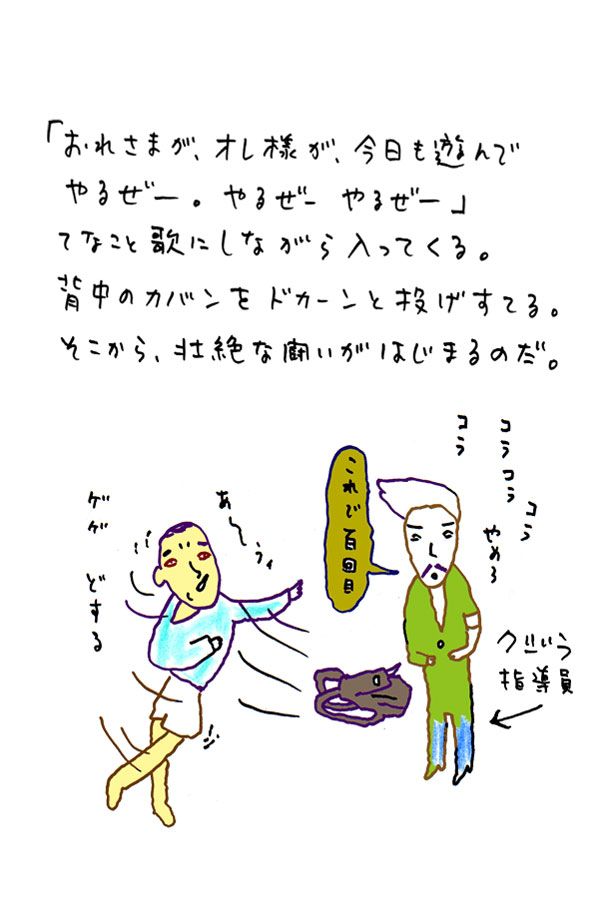 「おれさまが、オレ様が、今日も遊んで
やるぜー。やるぜー やるぜー」
てなこと歌にしながら入ってくる。
背中のカバンをドカーンと投げすてる。
そこから、壮絶な闘いがはじまるのだ。
コラ
コラコラ
コラ
やめろ
これで百回目
あ〜う、
ゲゲ
どする
指導員